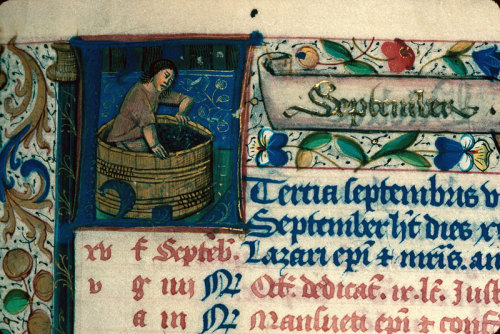 September
Tertia septembris v
September h͞t dies x
xv f Septēb. Lazari ep̄i ⁊ m̄ris. an
v g iiij N̄ Oct̄. dedicat̄.
a iij N̄ Mansueti ep̄i ⁊ conf